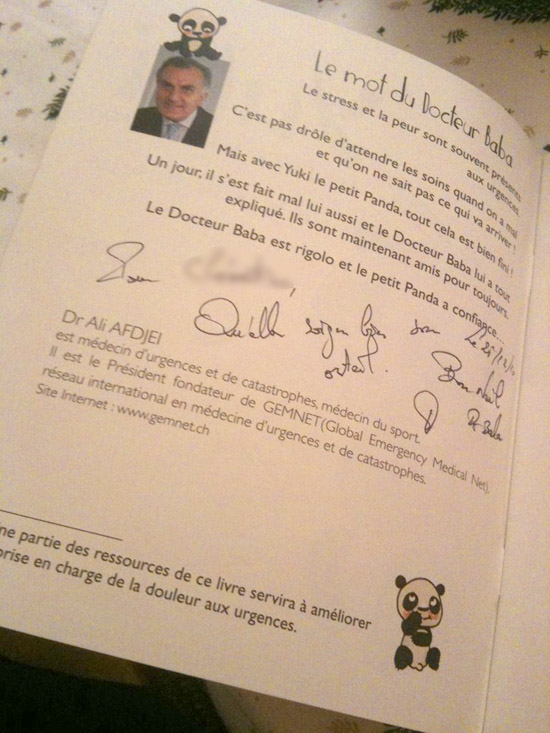 Le mot du Docteur Baba
Le stress et la peur sont souvent présents
aux urgences.
C'est pas drôle d'attendre les soins quand on a mal
et qu'on ne sait pas ce qui va arriver !
Mais avec Yuki le petit Panda, tout cela est bien fini !
Un jour, il s'est fait mal lui aussi et le Docteur Baba lui a tout
expliqué. Ils sont maintenant amis pour toujours.
Le Docteur Baba est rigolo et le petit Panda a confiance...
Pour
Dr Baba
Dr Ali AFDJEI
est médecin d'urgences et de catastrophes, médecin du sport.
Il est le Président fondateur de GEMNET(Global Emergency Medical Net),
réseau international en médecine d'urgences et de catastrophes.
Site Internet : www.gemnet.ch
ne partie des ressources de ce livre servira à améliorer
prise en charge de la douleur aux urgences.